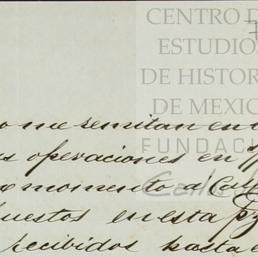 CENTRO D
ESTUDIO
DE HISTOR
DE MEXIC
FUNDAC
o me remitan en
s operaciones en
momento a
uestos en esta
recibidos hasta